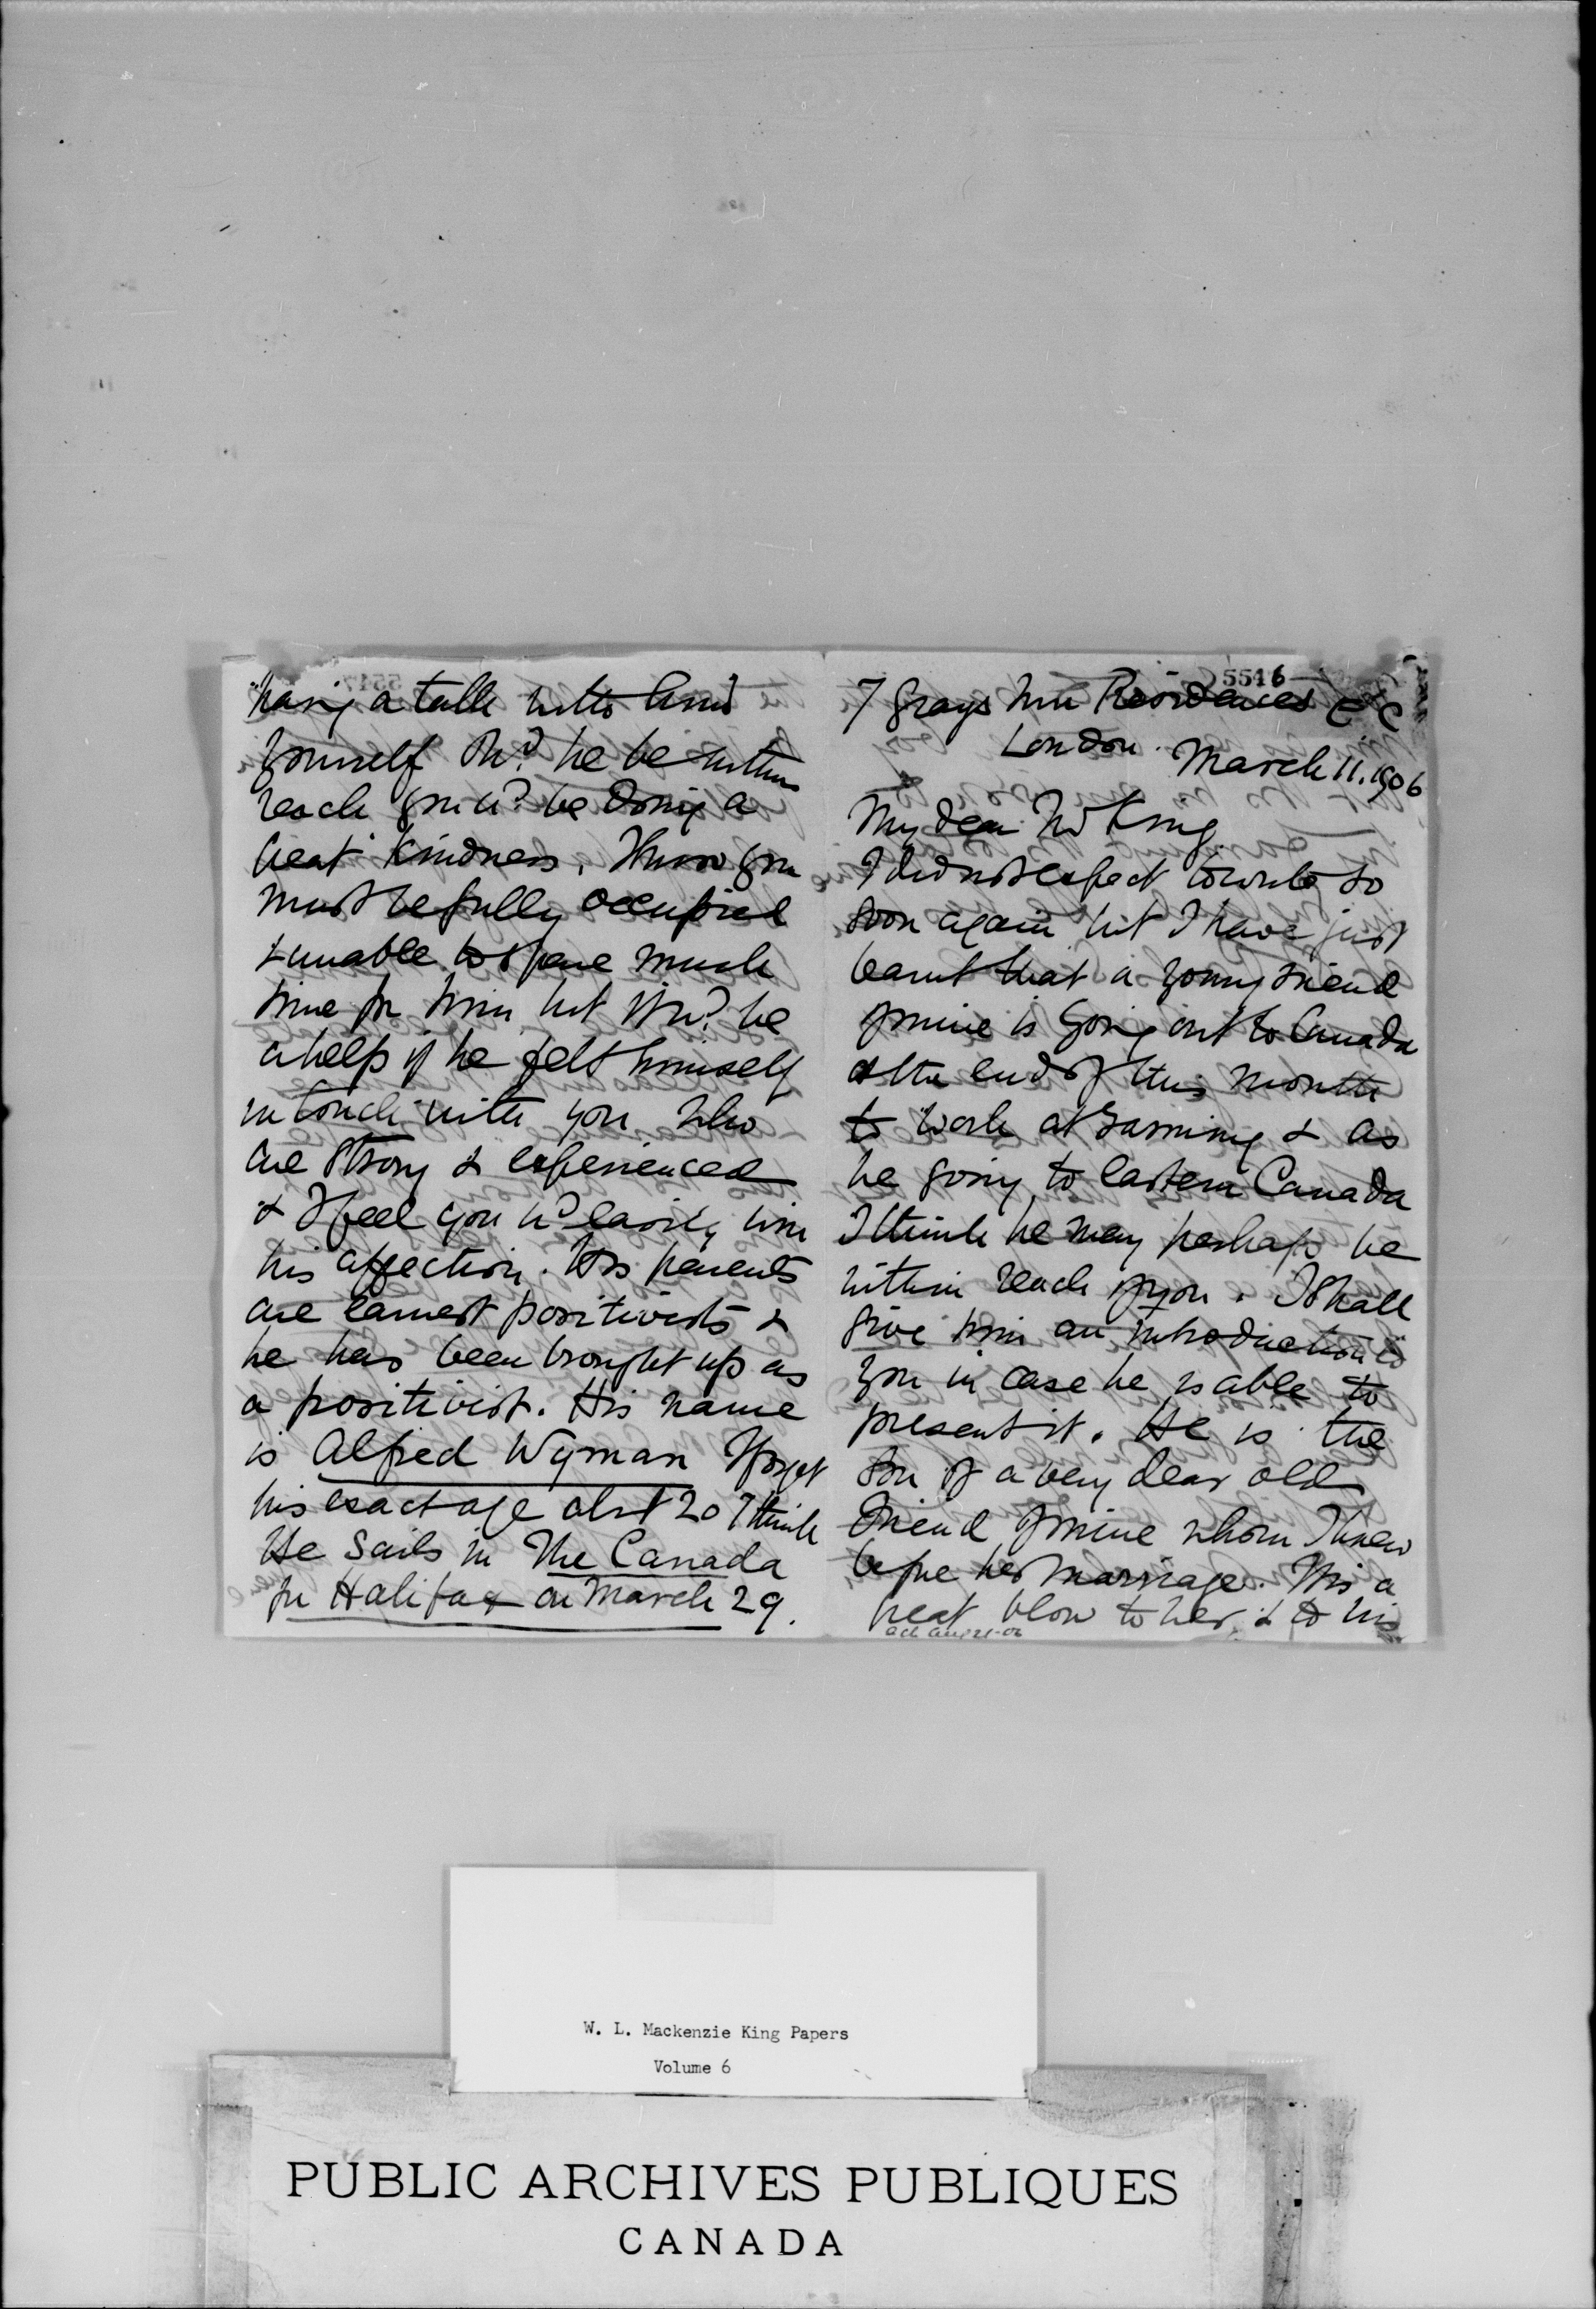 5516
7 Grays Inn Residences E C
London. March 11. 1906
My dear Mr King
I did not expect to write so
soon again but I have just
learnt that a young friend
of mine is going out to Canada
at the end of this month
to work at farming & as
he going to Eastern Canada
I think he may perhaps be
within reach of you. I shall
give him an introduction to
you in case he is able to
present it. He is the
son of a very dear old
friend of mine whom I knew
before her marriage. It is a
great blow to her & to his
ack Aug 21-06
having a talk with him
yourself shd he be within
reach you wd be doing a
great kindness. I know you
must be fully occupied
& unable to spare much
time for him but it wd be
a help if he felt himself
in touch with you who
are strong & experienced
& I feel you wd easily win
his affection. His parents
are earnest positivists &
he has been brought up as
a positivist. His name
is Alfred Wyman I forget
his exact age abt 20 I think
He sails in The Canada
for Halifax on March 29.
W. L. Mackenzie King Papers
Volume 6
PUBLIC ARCHIVES PUBLIQUES
CANADA